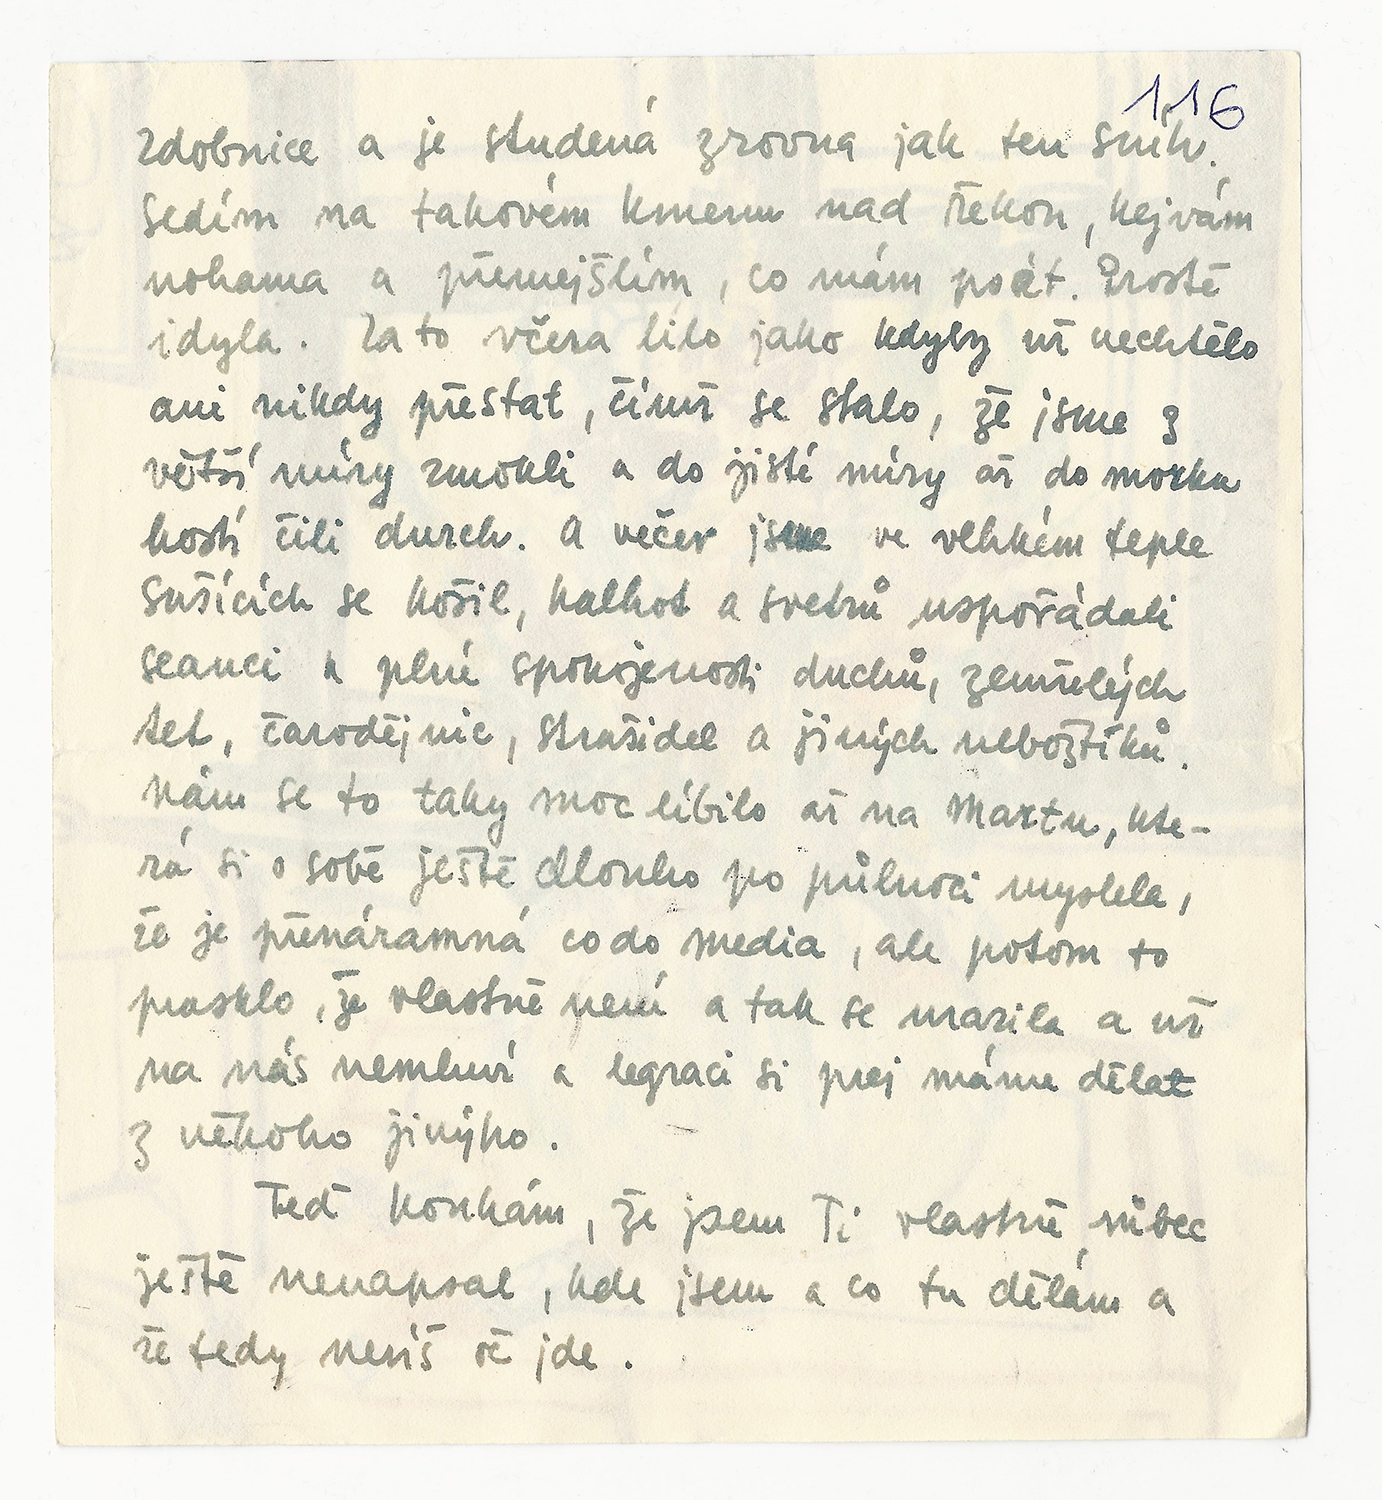 116
Zdobnice a je studená zrovna jak ten sníh.
Sedím na takovém kmenu nad řekou, kejvám
nohama a přemejšlím, co mám psát. Prostě
idyla. Zato včera lilo jako kdyby už nechtělo
ani nikdy přestat, čímž se stalo, že jsme z
větší míry zmokli a do jisté míry až do morku
kostí čili durch. A večer jsme ve vlhkém teple
sušících se košil, kalhot a svetrů uspořádali
seanci k plné spokojenosti duchů, zemřelých
tet, čarodějnic, strašidel a jiných nebožtíků.
Nám se to taky moc líbilo až na Martu, kte-
rá si o sobě ještě dlouho po půlnoci myslela,
že je přenáramná co do media, ale potom to
prasklo, že vlastně není a tak se urazila a už
na nás nemluví a legraci si prej máme dělat
z někoho jinýho.
Teď koukám, že jsem Ti vlastně vůbec
ještě nenapsal, kde jsem a co tu dělám a
že tedy nevíš oč jde.